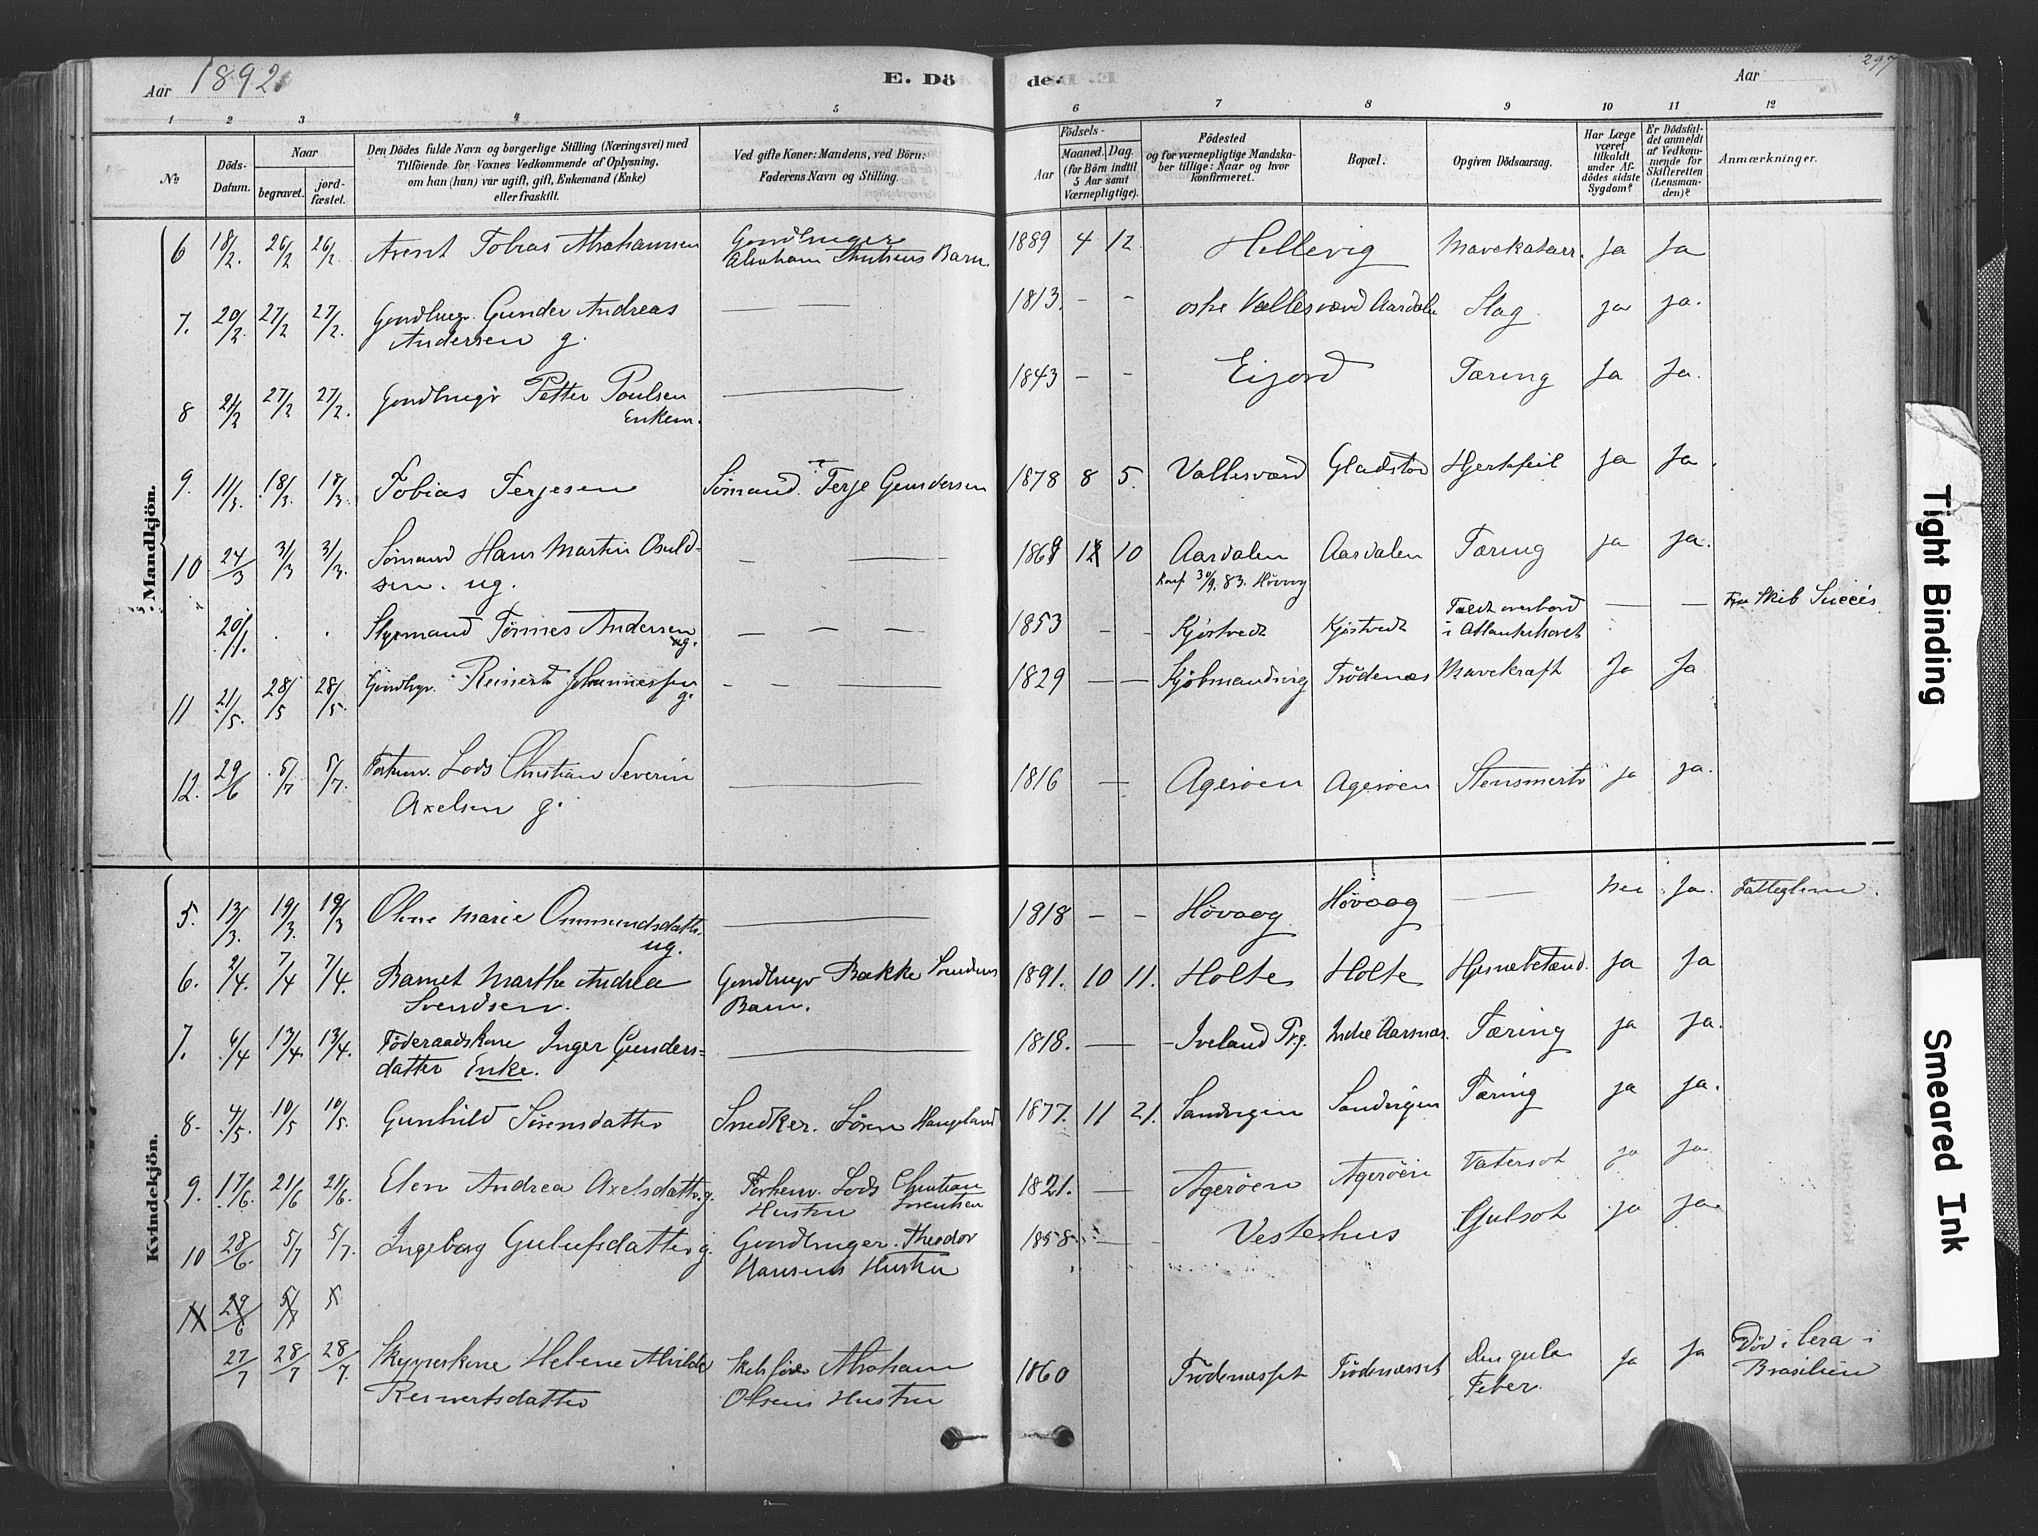 Aar 1892.
E. Dö
de.
Aar
297
1 2 3 4 5 6 7 8 9 10 11 12
№
Döds-Datum.
Naar
begravet.
jord-fæstet.
Den Dödes fulde Navn og borgerlige Stilling (Næringsvei) med
Tilföiende for Voxnes Vedkommende af Oplysning,
om han (hun) var ugift, gift, Enkemand (Enke)
eller fraskilt.
Ved gifte Koner: Mandens, ved Börn:
Faderens Navn og Stilling.
Födsels-
Aar
Maaned. Dag.
(for Börn indtil
5 Aar samt
Værnepligtige).
Födested
og for værnepligtige Mandska-
ber tillige: Naar og hvor
konfirmeret.
Bopæl.
Opgiven Dödsaarsag.
Har Læge
været
tilkaldt
under Af-
dödes sidste
Sygdom?
Er Dödsfal-
det anmeldt
af Vedkom-
mende for
Skifteretten
(Lensman-
den)?
Anmærkninger.
Mandkjön.
6 18/2. 26/2 26/2. Arent Tobias Abrahamsen Gaardbruger 1889 4 12. Hellevig Mavekatarr. Ja Ja
Abraham Barn.
7. 20/2 27/2 27/2. Gaardbrugr. Gunder Andreas — 1813. - - Vallesværd Aardalen Slag. ja ja.
Andersen g.
8 21/2 27/2 27/2. Gaardbrugr Petter Poulsen — 1843 - - Eijord Tæring Ja Ja.
Enkem.
9. 11/3. 18/3. 18/3. Tobias Terjesen Sømand. Terje Gundersen 1878 8 5. Vallesværd Gladstad Hjertfeil Ja Ja.
10 24/3 31/3 31/3. Sømand Hans Martin Osuld- — — 10 Aardalen Aardalen Tæring ja ja.
sen. ug. Konf. 30/9. 83. Høvaag
20/1. Styrmand Tønnes Andersen — — 1853 - - Kjøstvedt Kjøstvedt Faldt overbord — — Skib Succés.
ug. i Atlanterhavet
11 21/5. 28/5 28/5. Gaardbgr. Reinert Johannessen — — 1829 — — Kjøbmandsvig Trødenæs Mavekræft Ja Ja.
g.
12. 29/6 5/7 5/7. Forhenv. Lods Christian Severin — 1816 — Agerøen Agerøen Stensmerte ja ja.
Axelsen g.
Kvindekjön.
5. 13/3. 19/3. 19/3 Olene Marie Ommundsdatter — 1818 - - Høvaag Høvaag — Nei Ja. Fattiglem.
ug.
6. 2/4. 7/4 7/4. Barnet Marthe Andrea Gaardbrugr Bække Svendsens 1891. 10 11. Holte Holte Hjernebetænd. Ja Ja
Svendsen. Barn.
7. 6/4 13/4. 13/4. Føderaadskone Inger Gunders- — 1818. — — Iveland Prg. Indre Aarsnæs. Tæring ja ja.
datter Enke.
8. 4/5. 10/5 10/5. Gunhild Sørensdatter Snedker. Søren Haugeland 1877. 11 21. Sandvigen Sandvigen Tæring ja ja.
9. 17/6. 21/6 21/6. Elen Andrea Axelsdatter g. Forhenv. Lods Christian 1821. — Agerøen Agerøen Vatersot ja ja.
Hustru
10 28/6. 5/7 5/7. Ingeborg Gulufsdatter g. Gaardbruger. Theodor 1858. — Vesterhus Gulsot ja ja.
Hansens Hustru
11 29/6 5/7 5
27/7 28/7 28/7. Skipperskone Helene Alvilde Skibsfører Abraham 1860 Trødenæsset Trødenæsset Den gule Ja Ja Død i Cera i
Reinertsdatter Olsens Hustru Feber. Brasilien
Tight Binding
Smeared Ink